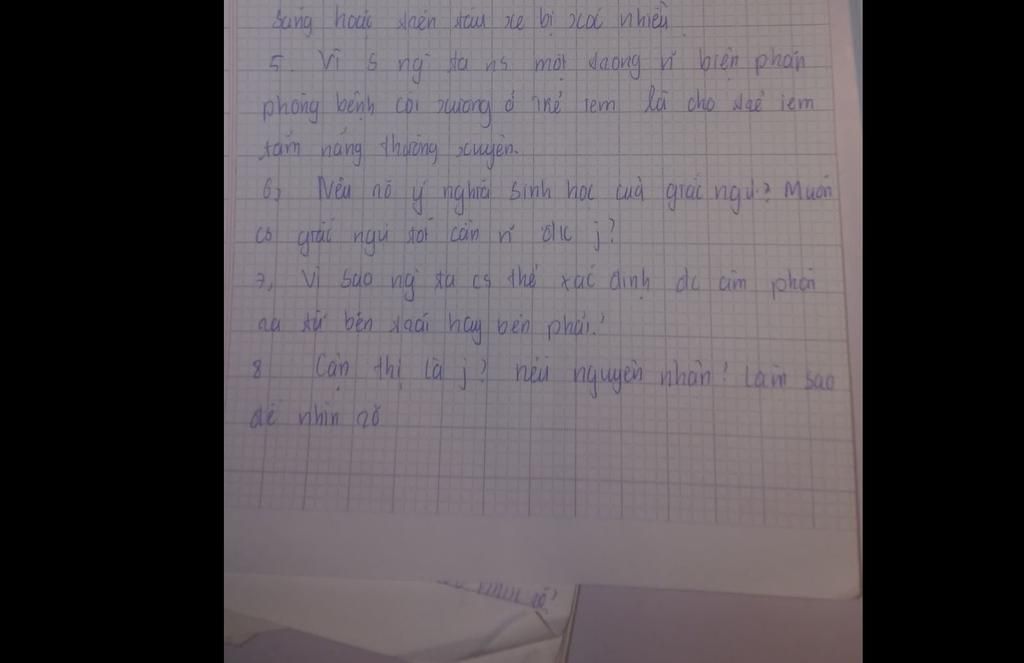 sáng hoặc trên tàu xe bị xóc nhiều
5. Vì s ng ta ns một trong n~ biện pháp
phòng bệnh còi xương ở trẻ em là cho trẻ em
tắm nắng thường xuyên.
6, Nêu rõ ý nghĩa sinh học của giấc ngủ? Muốn
cs giấc ngủ tốt cần n~ đk j?
7, Vì sao ng ta cs thể xác định dc âm phát
ra từ bên trái hay bên phải?
8 Cận thị là j? nêu nguyên nhân? Làm sao
để nhìn rõ
nhìn rõ?